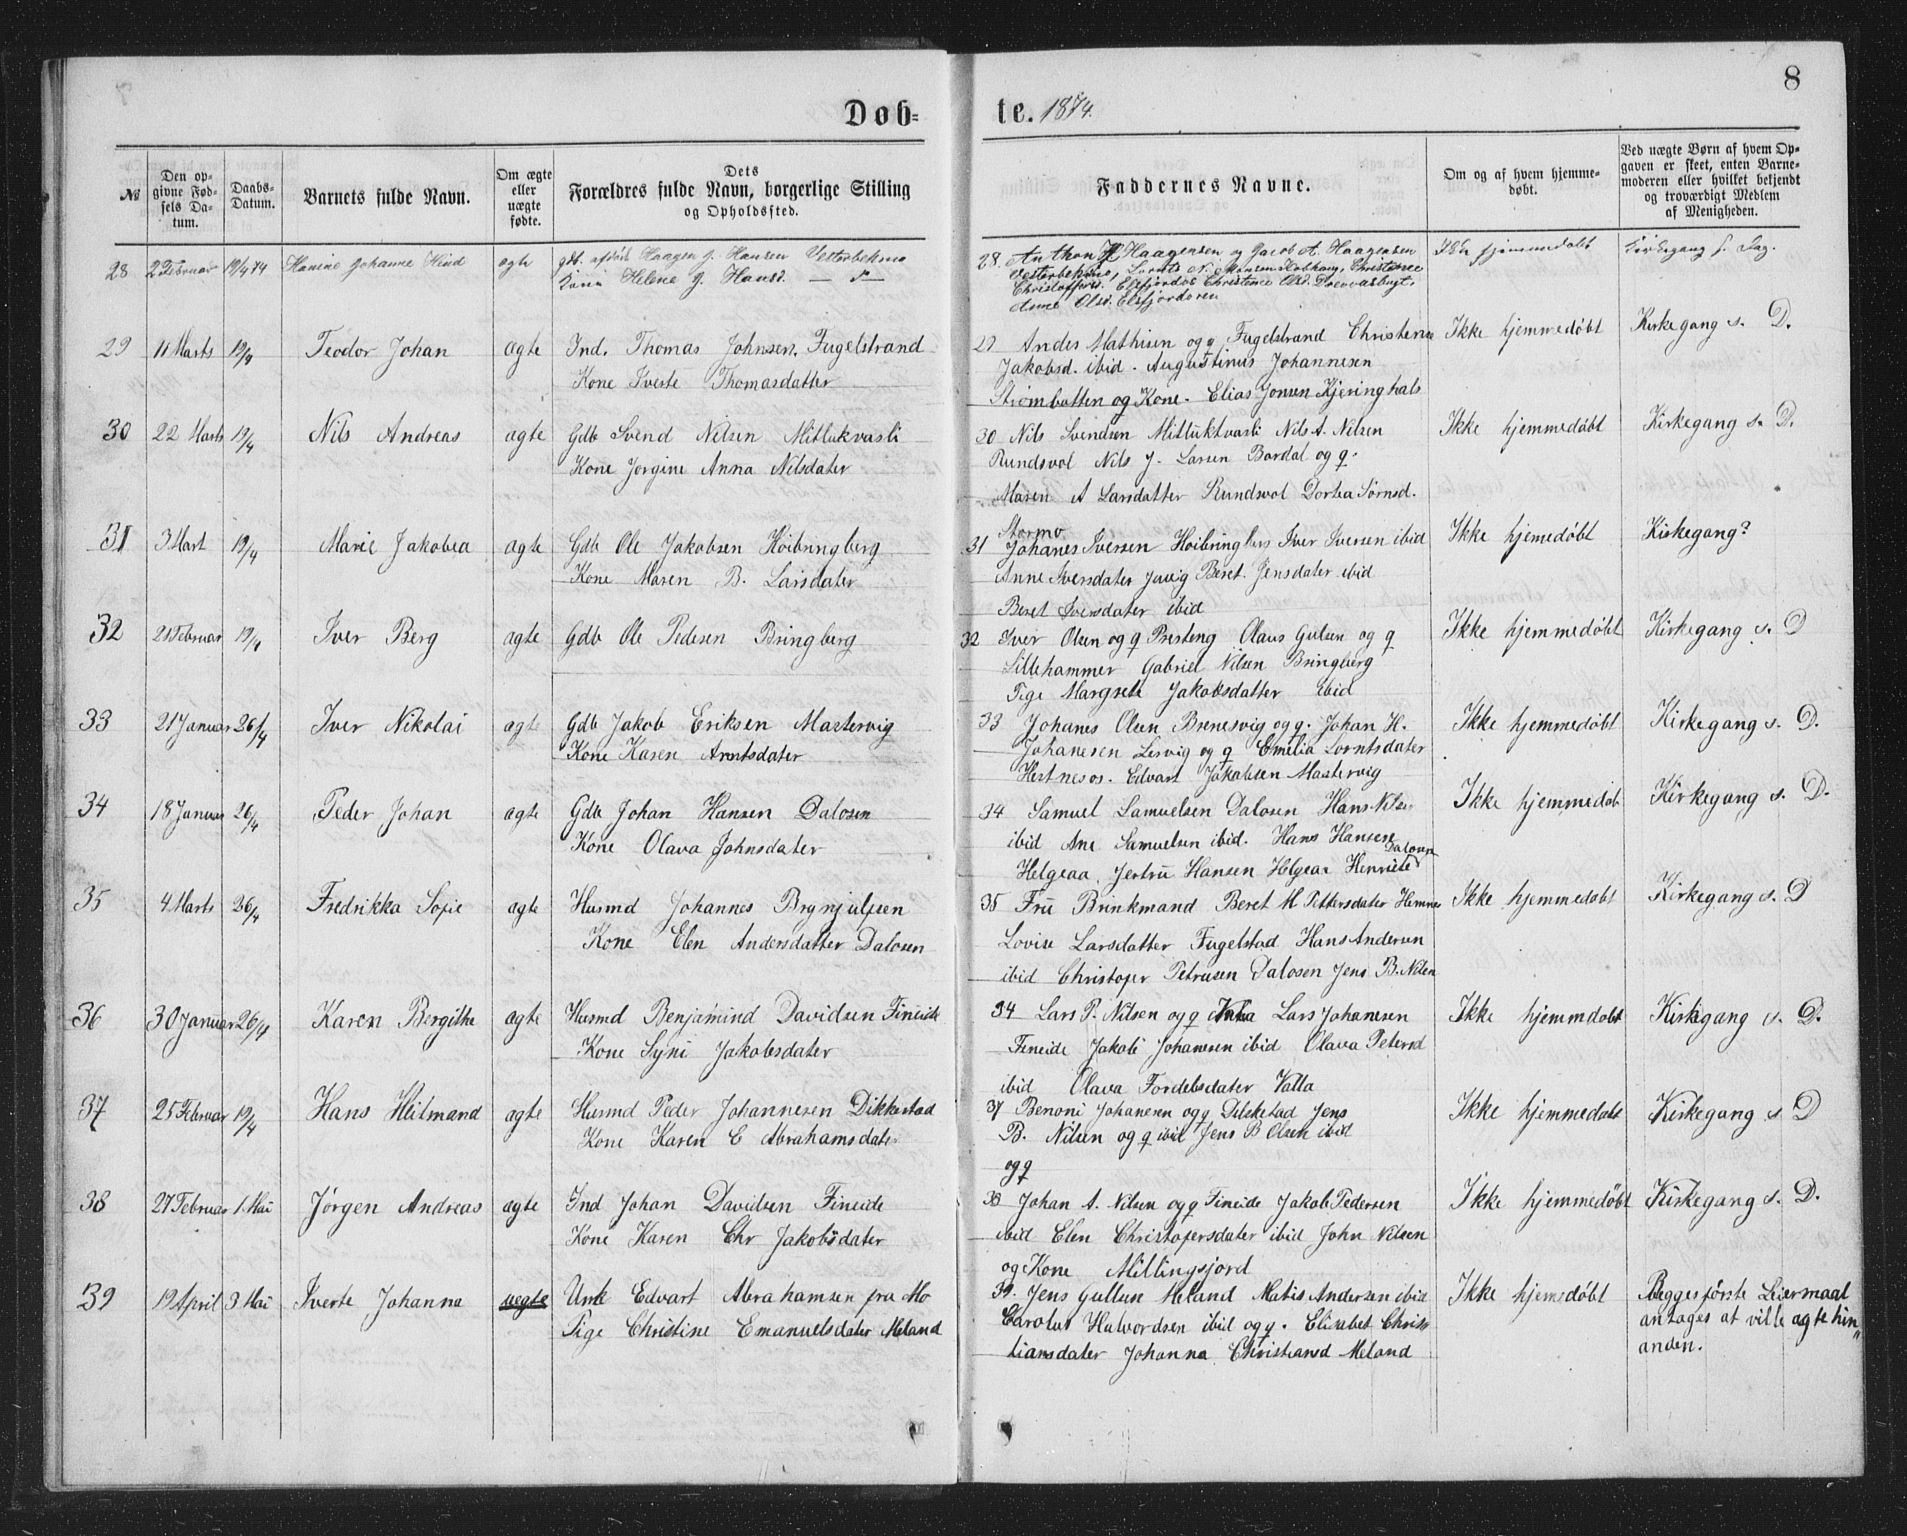 8
Døb=
te. 1874.
№
Den op-
givne Fød-
sels Da-
tum.
Daabs-
Datum.
Barnets fulde Navn.
Om ægte
eller
uægte
fødte.
Dets
Forældres fulde Navn, borgerlige Stilling
og Opholdssted.
Faddernes Navne.
Om og af hvem hjemme-
døbt.
Ved uægte Børn af hvem Op-
gaven er skeet, enten Barne-
moderen eller hvilket bekjendt
og troværdigt Medlem
af Menigheden.
28 2 Februar 19/4 74 Hanine Johanne Kind agte gdb. afdøde Haagen J. Hansen Vesterbekmo
Kone Helene J. Hansd. — " —
28. Anthon H Haagensen og Jacob A. Haagensen
Vesterbekmo, Lornts N. Christence
Christoffersd. Elsfjordos Christence Olsd.
Anne Olsd. Elsfjordøren
Ikke hjemmedøbt Kirkegang s. Dag.
29 11 Marts 19/4 Teodor Johan agte Ind. Thomas Johnsen, Fugelstrand
Kone Iverte Thomasdatter
29 Andes Mathisen og q Fugelstrand Christense
Jakobsd. ibid. Augustinus Johannesen
Strømbotten og Kone. Elias Jonsen Kjeringhals
Ikke hjemmedøbt Kirkegang s. D.
30 22 Marts 19/4 Nils Andreas agte Gdb Svend Nilsen Mitlukvasli
Kone Jorgine Anna Nilsdater
30 Nils Svendsen Mitluktvasli Nils A. Nilsen
Rundsvol Nils J. Larsen Bardal og q.
Maren A Larsdatter Rundsvol Dortea Sørnsd.
Stormo.
Ikke hjemmedøbt Kirkegang s. D.
31 3 Mart 19/4 Marie Jakobea agte Gdb Ole Jakobsen Høibringberg
Kone Maren B. Larsdater
31 Johanes Iversen Høibringberg Iver Iversen ibid
Anne Iversdater Beret Jensdater ibid
Beret Iversdater ibid
Ikke hjemedøbt Kirkegang?
32 21 Februar 19/4 Iver Berg agte Gdb Ole Pedesen Bringberg
32 Iver Olsen og q Presteng Olaus Gulsen og q
Lillehammer Gabriel Nilsen Bringberg
Pige Margrete Jakobsdatter ibid
Ikke hjemmedøbt Kirkegang s. D
33 21 Januar 26/4 Iver Nikolai agte Gdb Jakob Eriksen Mastervig
Kone Karen Arntsdater
33 Johanes Olsen Brenesvig og q. Johan H.
Johanesen Lervig og q Emelia Lorntsdater
Hestnesos. Edvart Jakobsen Mastervig
Ikke hjemmedøbt Kirkegang s. D.
34 18 Januar 26/4 Peder Johan agte Gdb Johan Hansen Dalosen
Kone Olava Johnsdater
34 Samuel Samuelsen Dalosen Hans Nilsen
ibid Ane Samuelsen ibid. Hans Hansen
Dalosen
Helgeaa. Jertru Hansen Helgeaa Henriete
Ikke hjemmedøb Kirkegang s. D.
35 4. Marts 26/4 Fredrikka Sofie agte Husmd Johannes Brynjulfsen
Kone Elen Andersdatter Dalosen
35 Fru Brinkmand Beret M Pettersdater Hemnes
Lovise Larsdatter Fugelstad Hans Andersen
ibid Christofer Petrusen Dalosen Jens B. Nilsen
Ikke hjemmedøbt Kirkegang s. D
36 30 Januar 26/4 Karen Bergitte agte Husmd Benjamind Davidsen Fineide
Kone Syni Jakobsdater
34 Lars P. Nilsen og q Lars Johanesen
Fineide Jakob Johanesen ibid Olava Petersd
ibid Olava Fordelsdater Valla
Ikke hjemmdøbt Kirkegang s. D.
37 25 Februar 19/4 Hans Hilmand agte Husmd Peder Johannesen Dikkestad
Kone Karen E Abrahamsdater
37 Benoni Johanesen og q Dikkestad Jens
B. Nilsen og q ibid Jens B Olsen ibid
og q
Ikke hjemmedøbt Kirkegang s. D
38 27 Februar 1. Mai Jörgen Andreas agte Ind Johan Davidsen Fineide
Kone Karen Chr Jakobsdater
38 Johan A. Nilsen og q Fineide Jakob Pedersen
ibid Elen Christofersdater ibid John Nilsen
og Kone Millingsjord
Ikke hjemmedøbt Kirkegang s. D.
39 19 April 3 Mai Iverte Johanna uegte Unk Edvart Abrahamsen fra Mo
Pige Christine Emanuelsdater Meland
39. Jens Gullun Meland Matis Andersen ibid
Carolus Halvordsen ibid og q. Elisebet Chris
tiansdater Johanna Christiansd Meland
Ikke hjemedøbt Begges første Leiermaal
antages at ville agte hin"
anden.